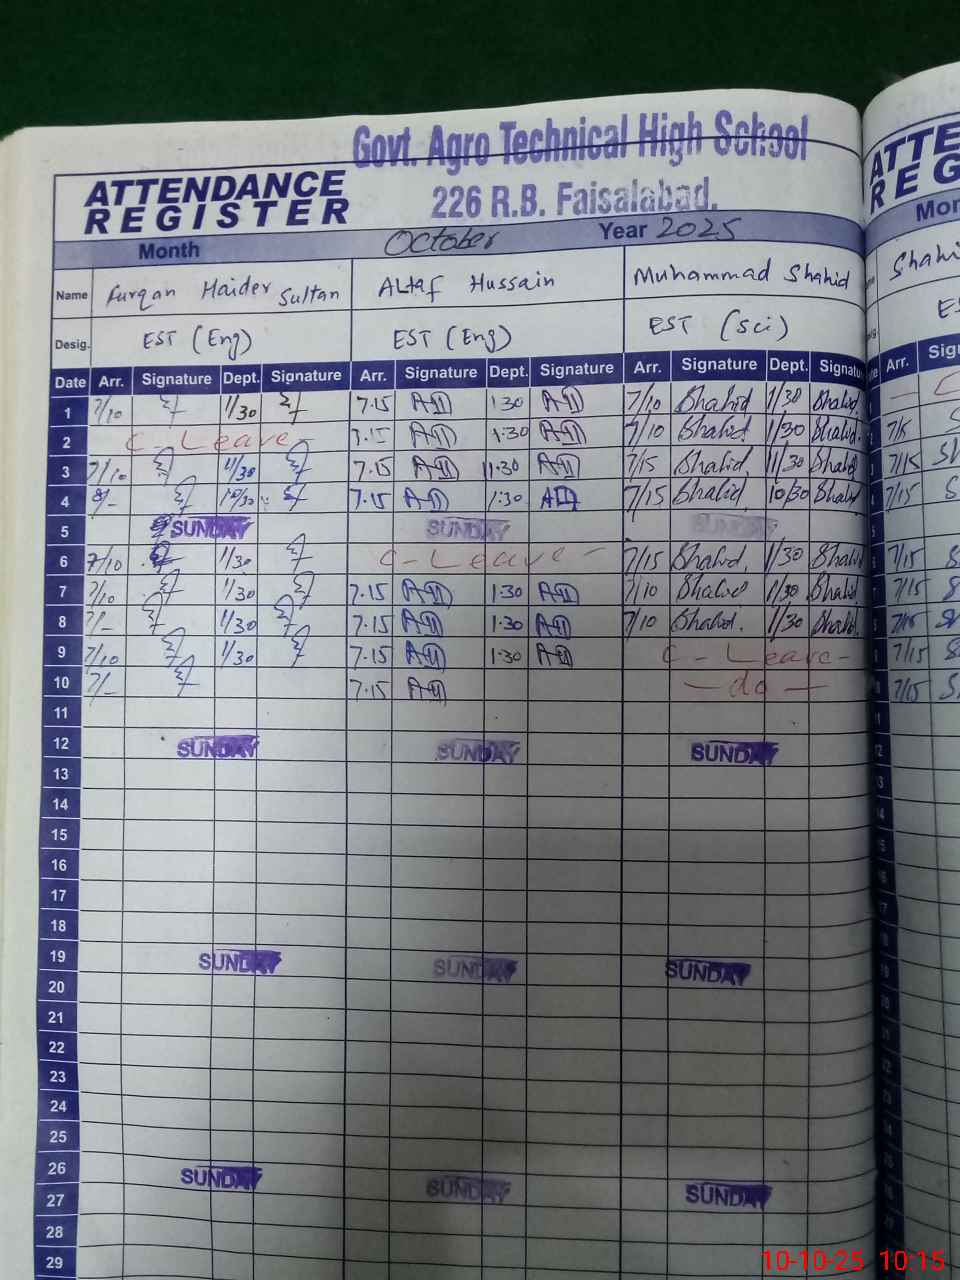 Govt. Agro Technical High School
226 R.B. Faisalabad.
ATTENDANCE
REGISTER
Month October Year 2025
Name Furqan Haider Sultan ALtaf Hussain Muhammad Shahid
Desig. EST (Eng) EST (Eng) EST (Sci)
Date Arr. Signature Dept. Signature Arr. Signature Dept. Signature Arr. Signature Dept. Signatu
1 7/10 1/30 7.15 1:30 7/10 Shahid 1/30 Shahid
2 C - Leave - 7.15 1:30 7/10 Shahid 1/30 Shahid
3 7/10 11/30 7.15 11:30 7/15 Shahid 11/30 Shahid
4 7.15 1:30 7/15 Shahid 10/30 Shahid
5 SUNDAY SUNDAY SUNDAY
6 7/10 1/30 C - Leave - 7/15 Shahid 1/30 Shahid
7 7/10 1/30 7.15 1:30 7/10 Shahid 1/30 Shahid
8 7/- 1/30 7.15 1:30 7/10 Shahid 1/30 Shahid
9 7/10 1/30 7.15 1:30 C - Leave -
10 7/- 7.15 - do -
11
12 SUNDAY SUNDAY SUNDAY
13
14
15
16
17
18
19 SUNDAY SUNDAY SUNDAY
20
21
22
23
24
25
26 SUNDAY SUNDAY SUNDAY
27
28
29
ATTE
REG
Mon
Shahi
Arr. Sig
7/15
7/15
7/15
7/15
7/15
7/15
7/15
10-10-25 10:15